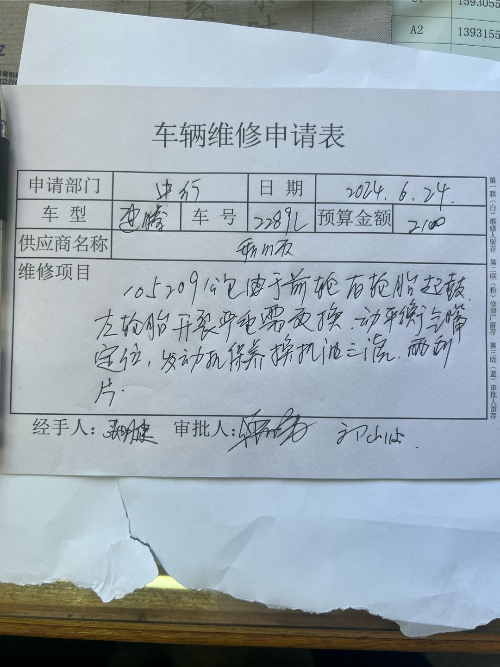 159305
A2
1393155
车辆维修申请表
申请部门 中行 日 期 2024.6.24.
车 型 速腾 车 号 2289L 预算金额 2100
供应商名称
维修项目
105209公里由于前轮右轮胎起鼓
左轮胎开裂严重需更换.动平衡气嘴
定位,发动机保养换机油三滤.雨刮
片.
经手人: 审批人:
第一联(白)维修人留存 第二联(粉)修理厂留存 第三联(蓝)审批人留存